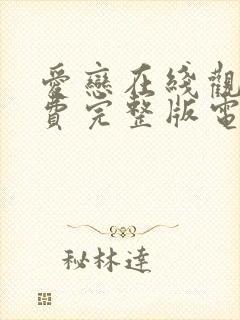 愛戀在綫觀
費完整版電
秘林達